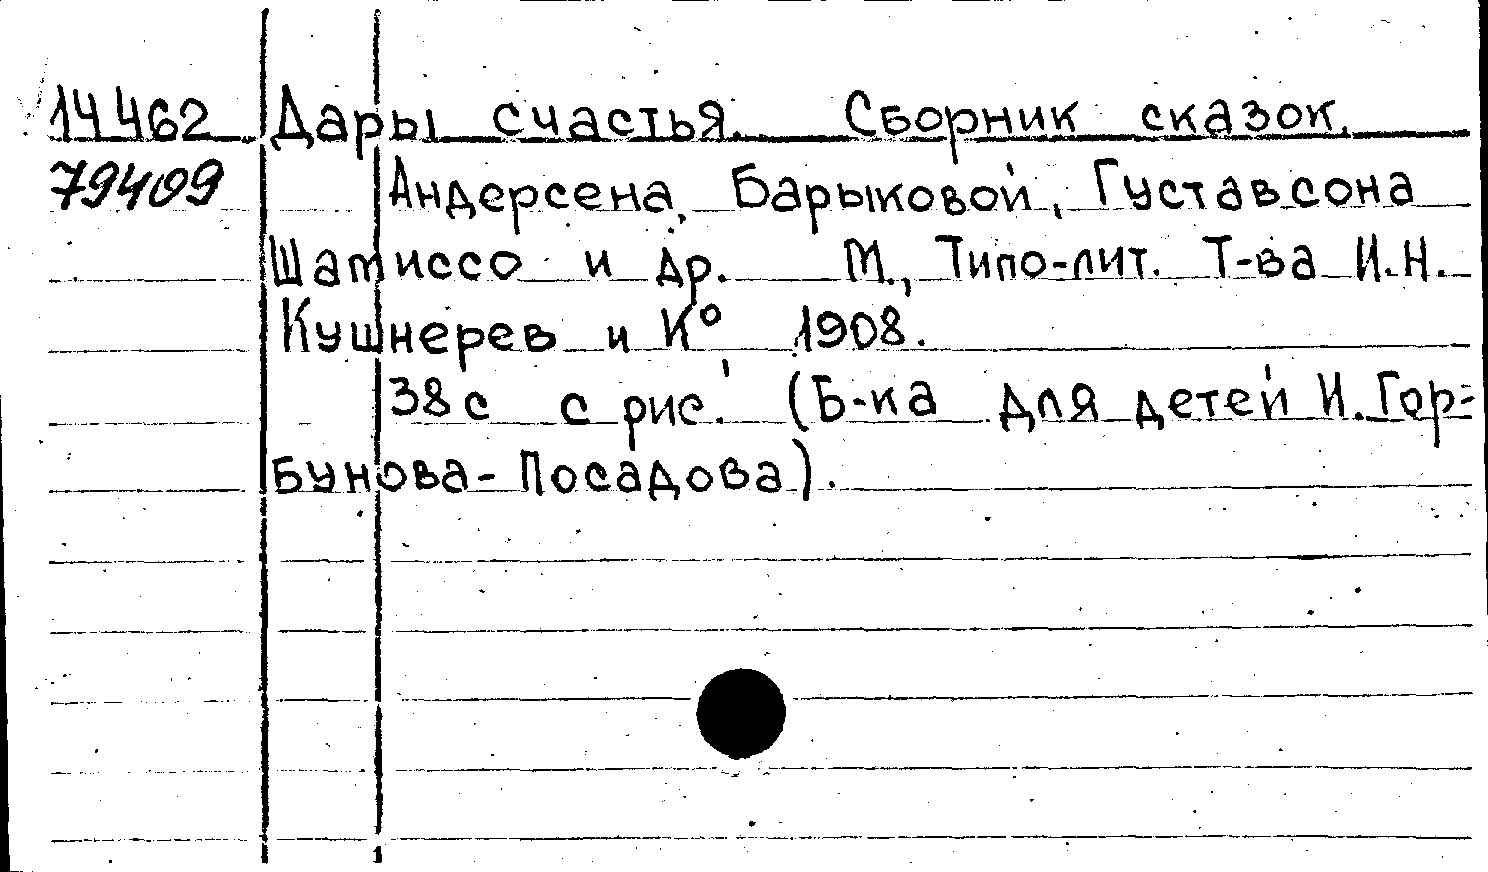 14462 Дары счастья. Сборник сказок.
79409 Андерсена, Барыковой, Густавсона
Шамиссо и др. М., Типо-лит. Т-ва И.Н.
Кушнерев и К°, 1908.
38с с рис. (Б-ка для детей И. Гор-
бунова-Посадова).